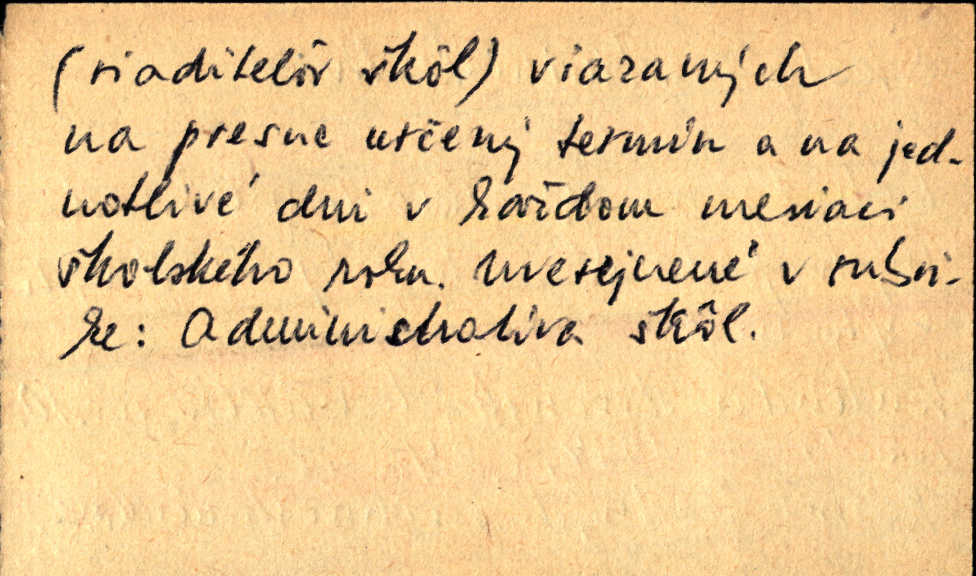 (riaditelôv škôl) viazaných
na presne určený termín a na jed-
notlivé dni v každom mesiaci
školského roku. Uverejnené v rubri-
ke: Administratíva škôl.